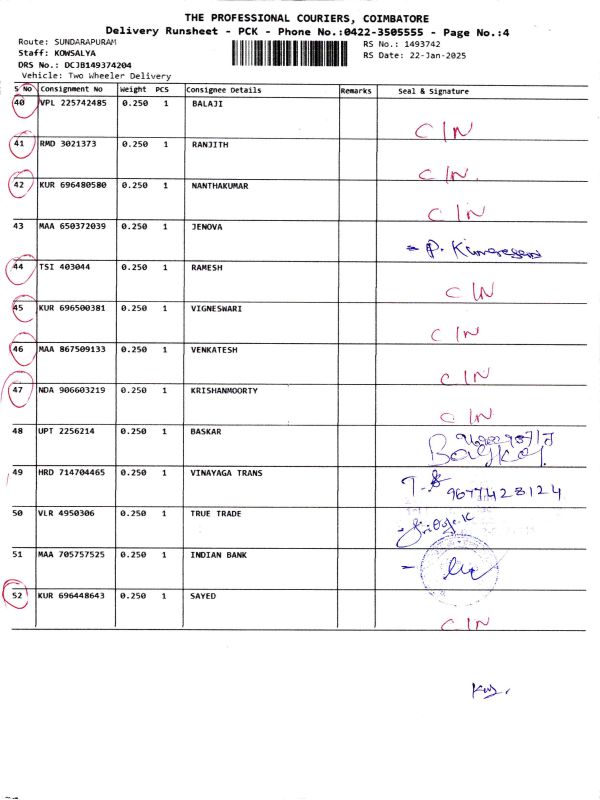 THE PROFESSIONAL COURIERS, COIMBATORE
Delivery Runsheet - PCK - Phone No.:0422-3505555 - Page No.:4
Route: SUNDARAPURAM RS No.: 1493742
Staff: KOWSALYA RS Date: 22-Jan-2025
DRS No.: DCJB149374204
Vehicle: Two Wheeler Delivery
S No Consignment No Weight PCS Consignee Details Remarks Seal & Signature
40 VPL 225742485 0.250 1 BALAJI C/N
41 RMD 3021373 0.250 1 RANJITH C/N.
42 KUR 696480580 0.250 1 NANTHAKUMAR C/N
43 MAA 650372039 0.250 1 JENOVA - P.
44 TSI 403044 0.250 1 RAMESH C/N
45 KUR 696500381 0.250 1 VIGNESWARI C/N
46 MAA 867509133 0.250 1 VENKATESH C/N
47 NDA 906603219 0.250 1 KRISHANMOORTY C/N
48 UPT 2256214 0.250 1 BASKAR
49 HRD 714704465 0.250 1 VINAYAGA TRANS 9677428124
50 VLR 4950306 0.250 1 TRUE TRADE
51 MAA 705757525 0.250 1 INDIAN BANK
52 KUR 696448643 0.250 1 SAYED C/N